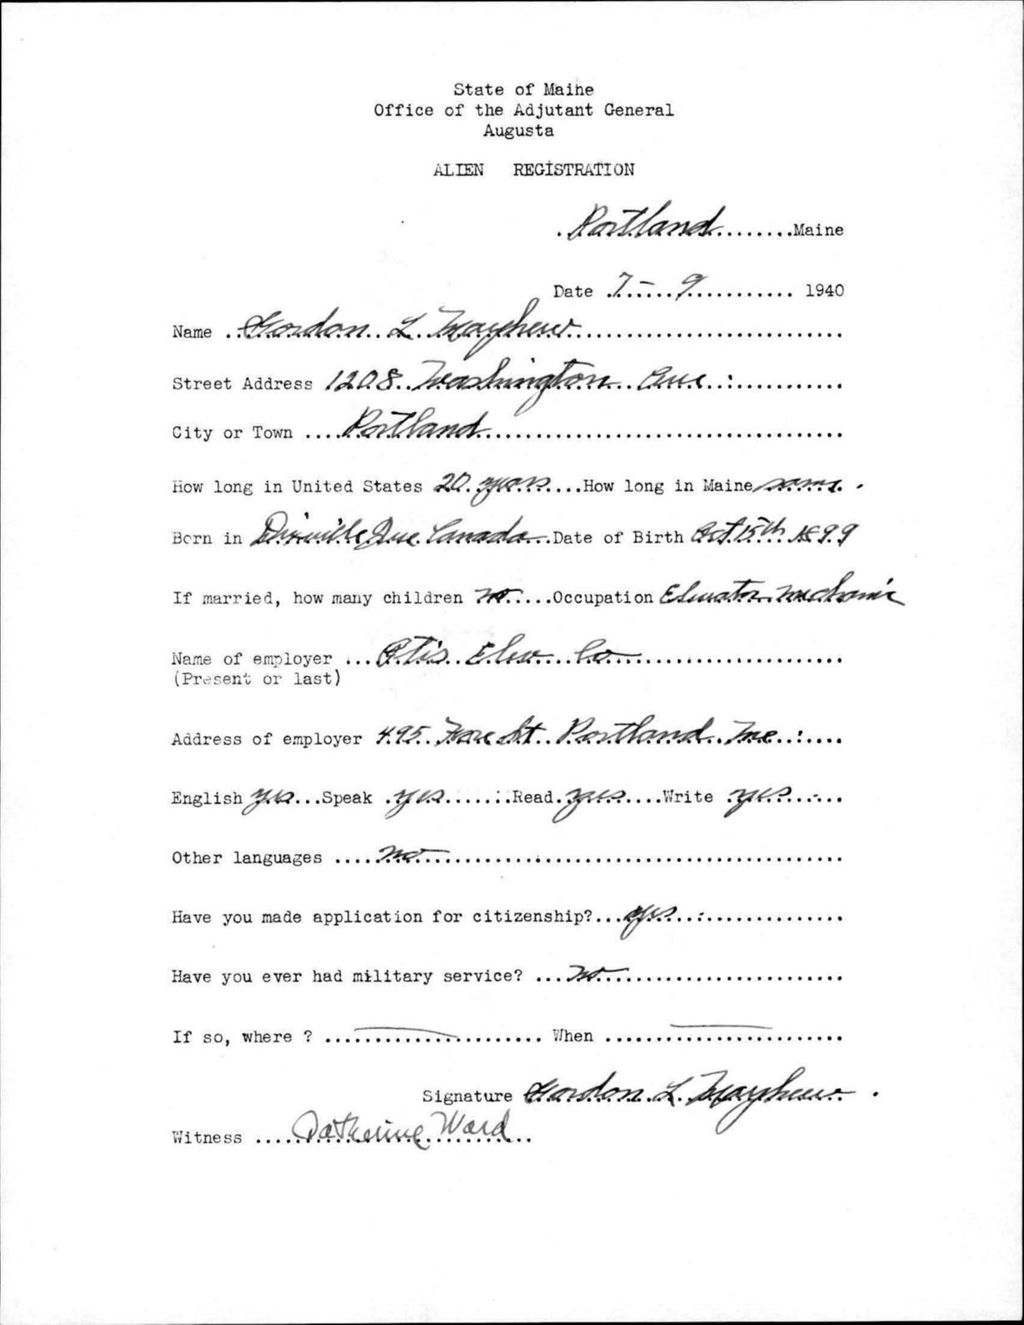 State of Maine
Office of the Adjutant General
Augusta
ALIEN REGISTRATION
Portland Maine
Date 7-9 1940
Name Gordon L Mayhew
Street Address 1208 Washington Ave
City or Town Portland
How long in United States 20 years How long in Maine same
Born in Dixville Que Canada Date of Birth Oct 15th 1899
If married, how many children no Occupation Elevator mechanic
Name of employer Otis Elev. Co
(Present or last)
Address of employer 495 Fore St Portland Me
English yes Speak yes Read yes Write yes
Other languages no
Have you made application for citizenship? yes
Have you ever had military service? no
If so, where ? When
Signature Gordon L Mayhew
Witness Catherine Ward